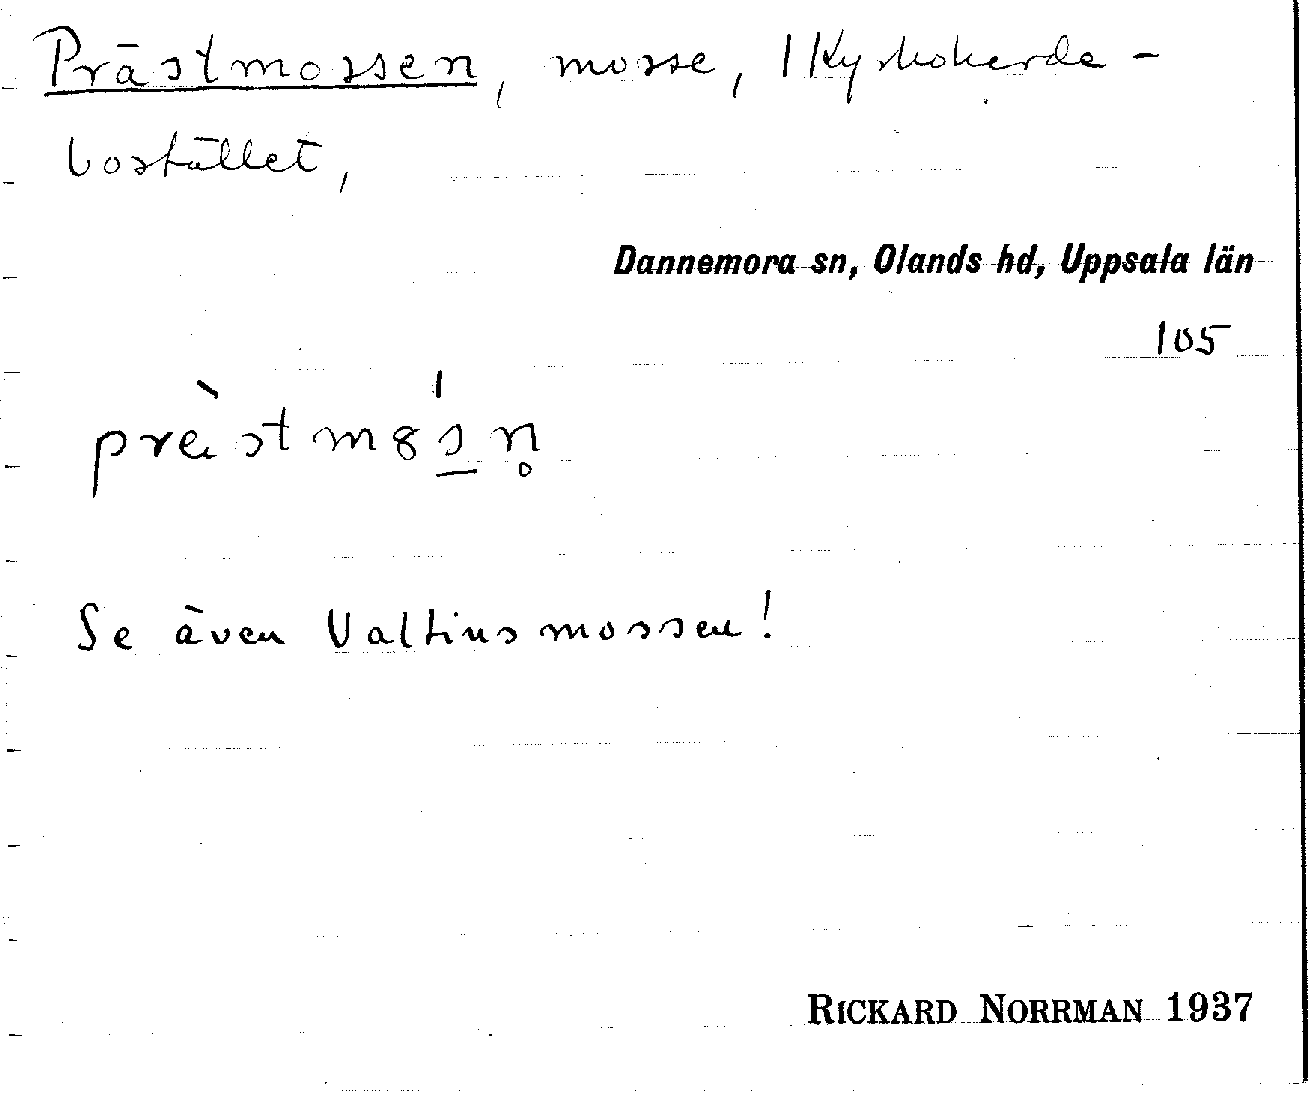 Prästmossen, mosse, 1 Kyrkoherde-
bostället,
Dannemora sn, Olands hd, Uppsala län
105
Se även Valtinsmossen!
RICKARD NORRMAN 1937